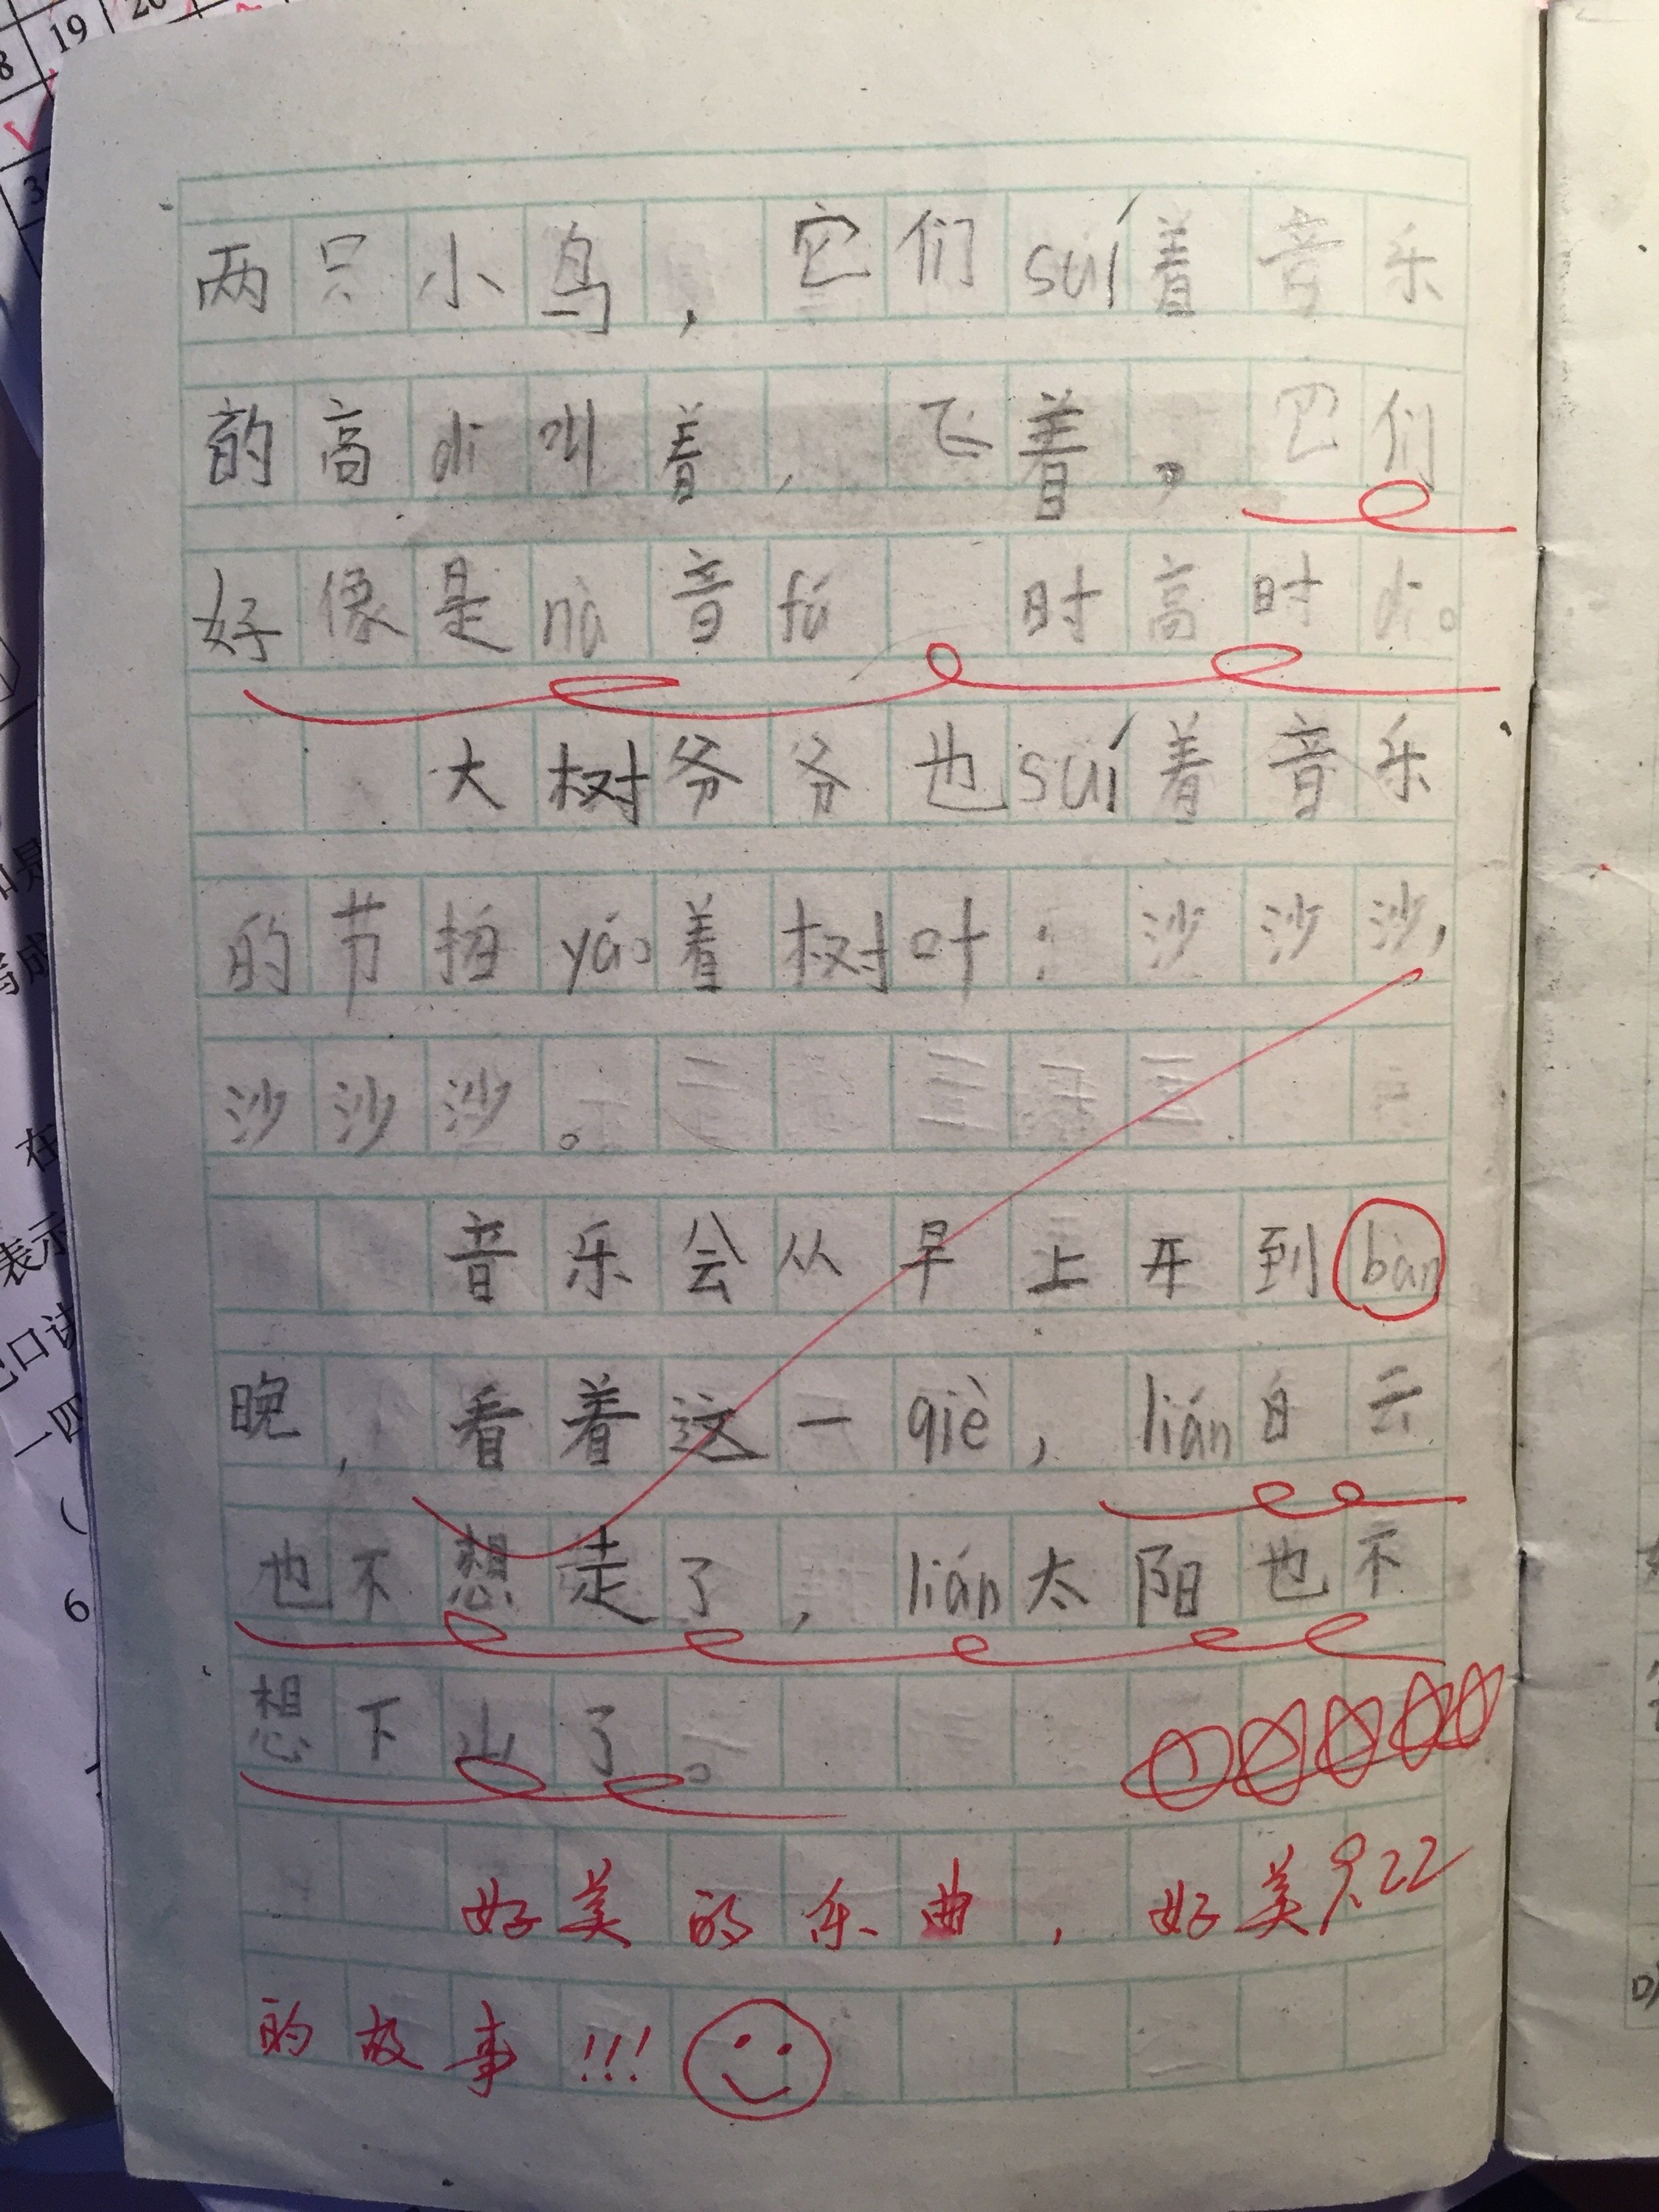 两只小鸟，它们suí着音乐
的高di叫着，飞着，它们
好像是nà音fú 时高时di。
大树爷爷也suí着音乐
的节拍yáo着树叶：沙沙沙，
沙沙沙。
音乐会从早上开到bàn
晚，看着这一qiè，lián白云
也不想走了，lián太阳也不
想下山了。
好美的乐曲，好美
的故事!!!
19
6